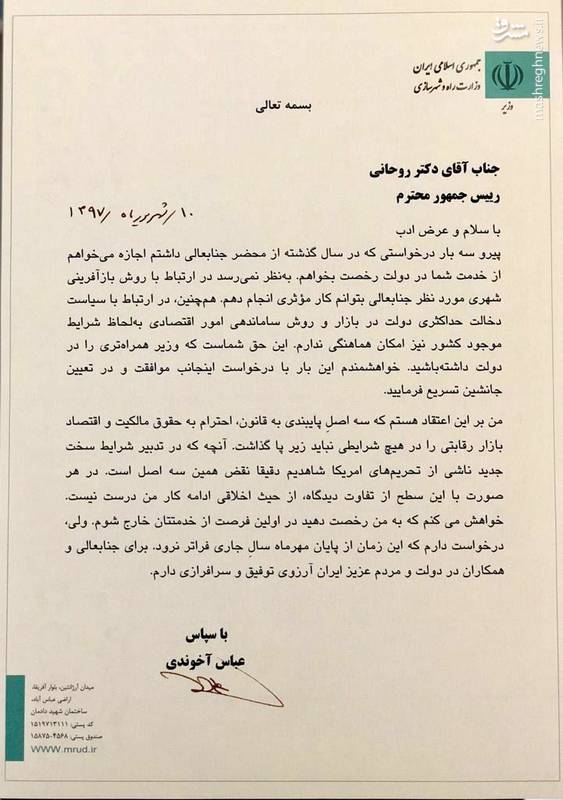 مشرق
mashreghnews.ir
جمهوری اسلامی ایران
وزارت راه و شهرسازی
وزیر
بسمه تعالی
جناب آقای دکتر روحانی
رییس جمهور محترم
۱۰/شهریورماه/۱۳۹۷
با سلام و عرض ادب
پیرو سه بار درخواستی که در سال گذشته از محضر جنابعالی داشتم اجازه می‌خواهم
از خدمت شما در دولت رخصت بخواهم. به‌نظر نمی‌رسد در ارتباط با روش بازآفرینی
شهری مورد نظر جنابعالی بتوانم کار مؤثری انجام دهم. هم‌چنین، در ارتباط با سیاست
دخالت حداکثری دولت در بازار و روش ساماندهی امور اقتصادی به‌لحاظ شرایط
موجود کشور نیز امکان هماهنگی ندارم. این حق شماست که وزیر همراه‌تری را در
دولت داشته‌باشید. خواهشمندم این بار با درخواست اینجانب موافقت و در تعیین
جانشین تسریع فرمایید.
من بر این اعتقاد هستم که سه اصلِ پایبندی به قانون، احترام به حقوق مالکیت و اقتصاد
بازار رقابتی را در هیچ شرایطی نباید زیر پا گذاشت. آنچه که در تدبیر شرایط سخت
جدید ناشی از تحریم‌های امریکا شاهدیم دقیقا نقض همین سه اصل است. در هر
صورت با این سطح از تفاوت دیدگاه، از حیث اخلاقی ادامه کار من درست نیست.
خواهش می کنم که به من رخصت دهید در اولین فرصت از خدمتتان خارج شوم. ولی،
درخواست دارم که این زمان از پایان مهرماه سالِ جاری فراتر نرود. برای جنابعالی و
همکاران در دولت و مردم عزیز ایران آرزوی توفیق و سرافرازی دارم.
با سپاس
عباس آخوندی
میدان آرژانتین، بلوار آفریقا،
اراضی عباس آباد،
ساختمان شهید دادمان
کد پستی: ۱۵۱۹۷۱۳۱۱۱
صندوق پستی: ۴۵۶۸-۱۵۸۷۵
www.mrud.ir